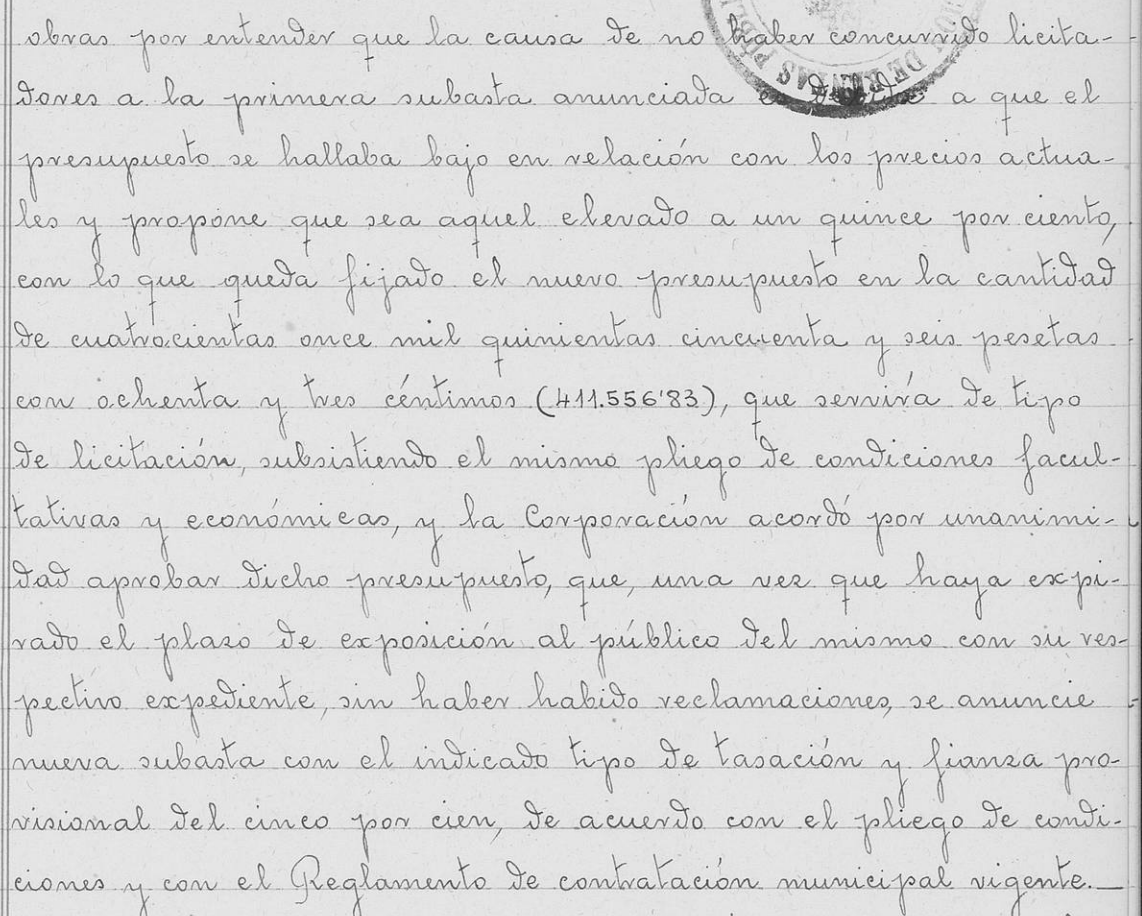 obras por entender que la causa de no haber concurrido licita-
dores a la primera subasta anunciada es debido a que el
presupuesto se hallaba bajo en relación con los precios actua-
les y propone que sea aquel elevado a un quince por ciento,
con lo que queda fijado el nuevo presupuesto en la cantidad
de cuatrocientas once mil quinientas cincuenta y seis pesetas
con ochenta y tres céntimos (411.556'83), que servirá de tipo
de licitación, subsistiendo el mismo pliego de condiciones facul-
tativas y económicas, y la Corporación acordó por unanimi-
dad aprobar dicho presupuesto, que, una vez que haya expi-
rado el plazo de exposición al público del mismo con su res-
pectivo expediente, sin haber habido reclamaciones, se anuncie
nueva subasta con el indicado tipo de tasación y fianza pro-
visional del cinco por cien, de acuerdo con el pliego de condi-
ciones y con el Reglamento de contratación municipal vigente.—